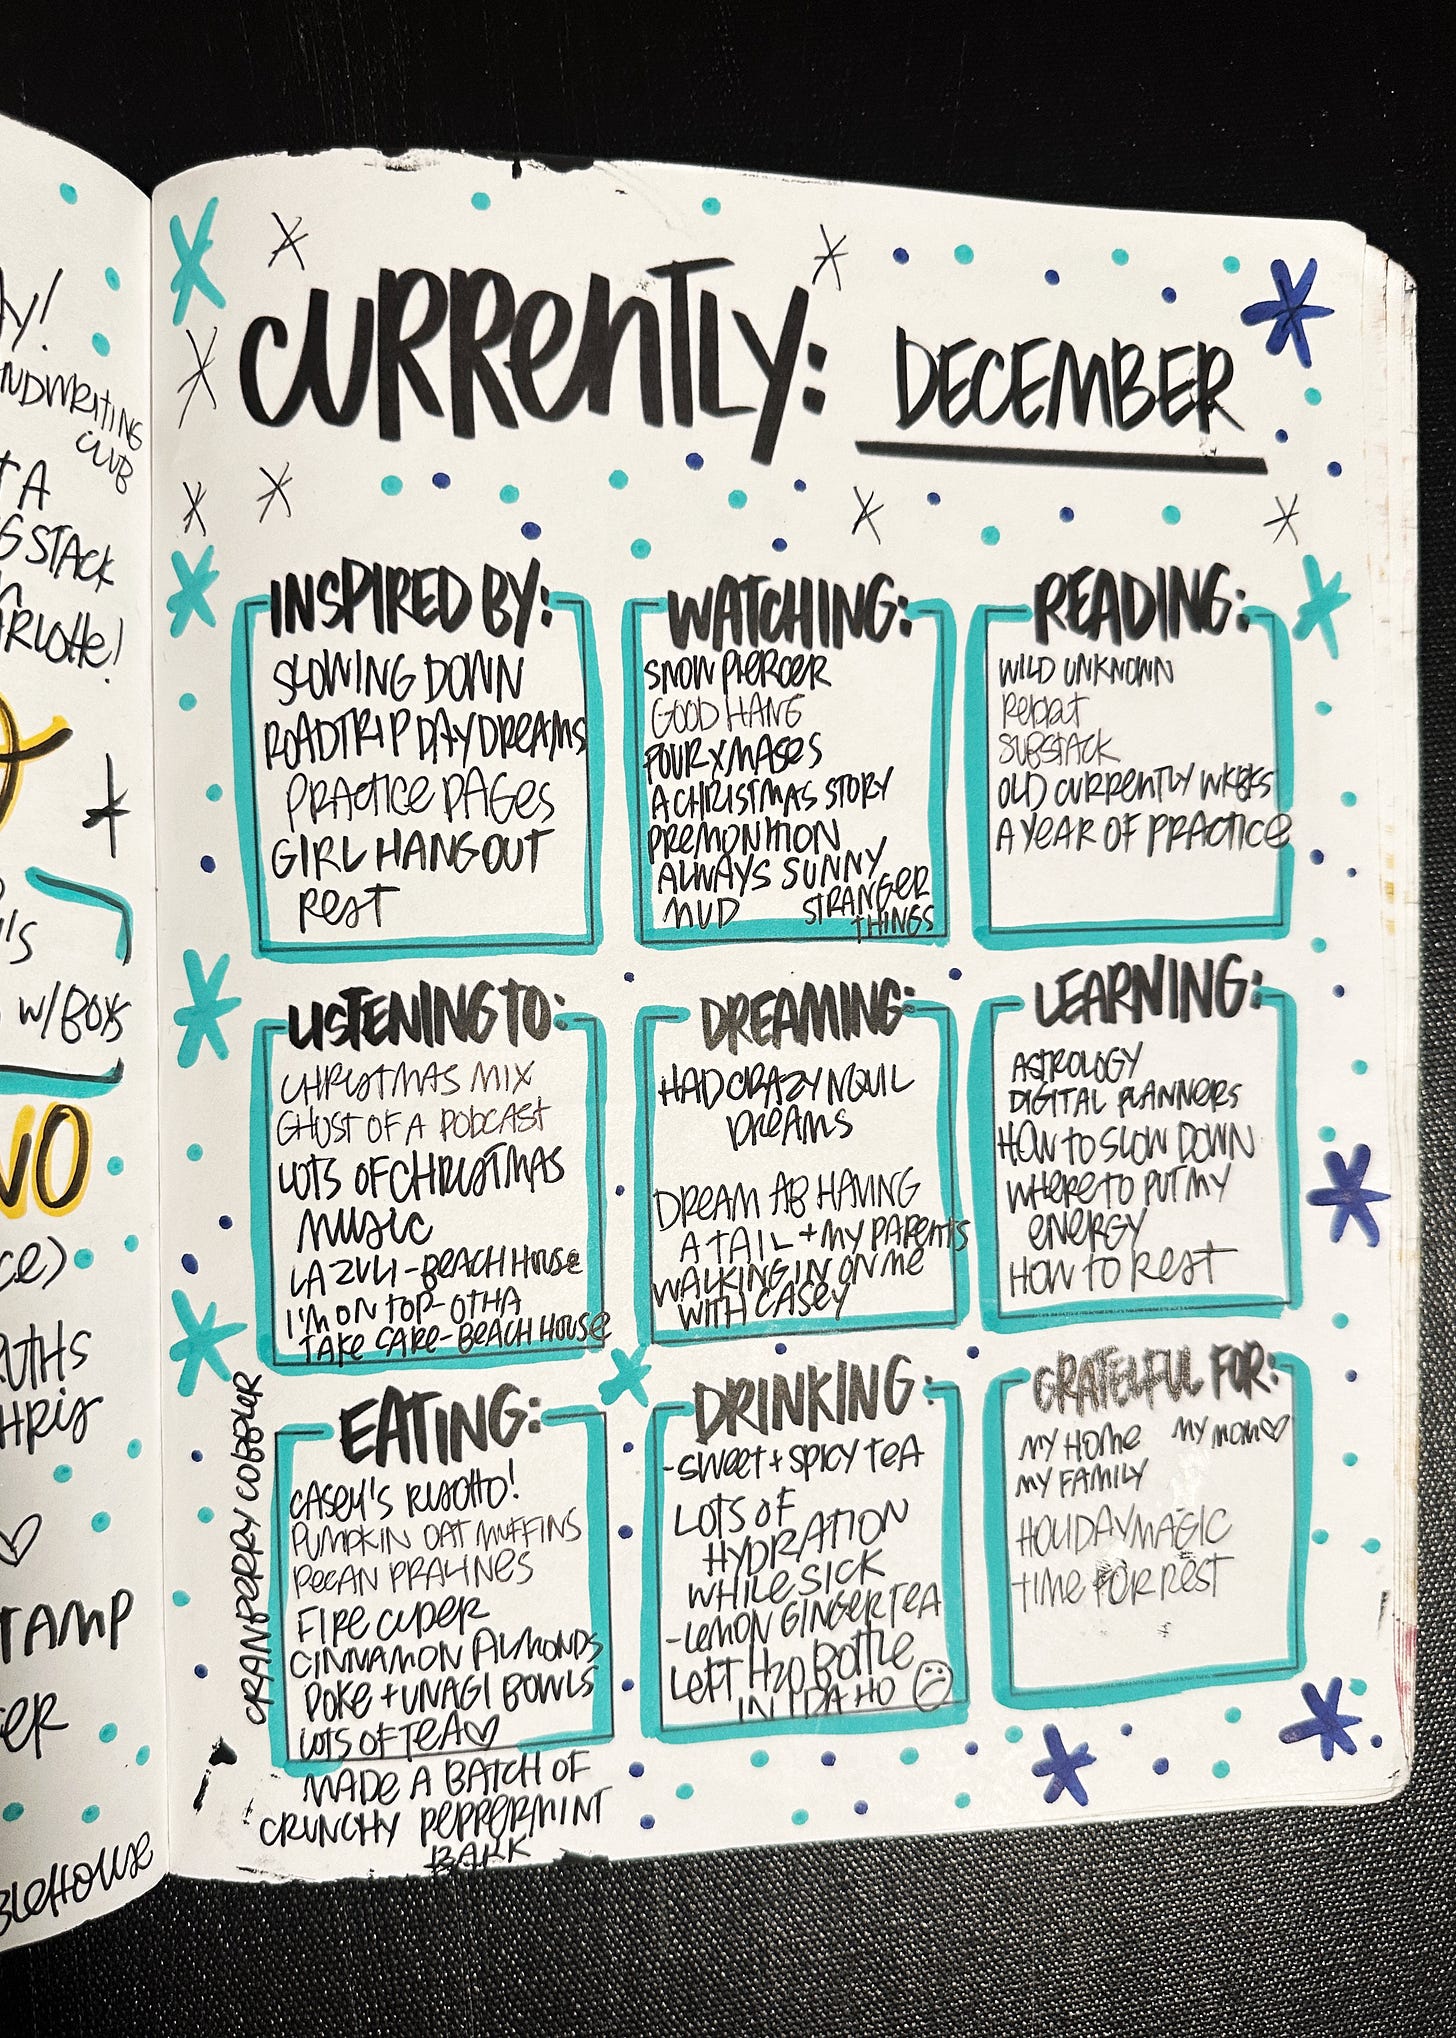 Y!
NDWRITING
CLUB
T A
G STACK
ARLOTTE!
W/BOYS
NO
CE)
UTHS
HRIS
TAMP
ER
BLEHOUSE
CURRENTLY: DECEMBER
INSPIRED BY:
SLOWING DOWN
ROADTRIP DAYDREAMS
PRACTICE PAGES
GIRL HANGOUT
REST
WATCHING:
SNOW PIERCER
GOOD HANG
FOUR XMASES
A CHRISTMAS STORY
PREMONITION
ALWAYS SUNNY
MUD
STRANGER
THINGS
READING:
WILD UNKNOWN
REPEAT
SUBSTACK
OLD CURRENTLY WKBKS
A YEAR OF PRACTICE
LISTENING TO:
CHRISTMAS MIX
GHOST OF A PODCAST
LOTS OF CHRISTMAS
MUSIC
LAZULI - BEACH HOUSE
I'M ON TOP - OTHA
TAKE CARE - BEACH HOUSE
DREAMING:
HAD CRAZY NQUIL
DREAMS
DREAM AB HAVING
A TAIL + MY PARENTS
WALKING IN ON ME
WITH CASEY
LEARNING:
ASTROLOGY
DIGITAL PLANNERS
HOW TO SLOW DOWN
WHERE TO PUT MY
ENERGY
HOW TO REST
EATING:
CASEY'S RISOTTO!
PUMPKIN OAT MUFFINS
PECAN PRALINES
FIRE CIDER
CINNAMON ALMONDS
POKE + UNAGI BOWLS
LOTS OF TEA♡
MADE A BATCH OF
CRUNCHY PEPPERMINT
BARK
CRANBERRY COBBLER
DRINKING:
-SWEET + SPICY TEA
LOTS OF
HYDRATION
WHILE SICK
-LEMON GINGER TEA
LEFT H2O BOTTLE
IN IDAHO ☹
GRATEFUL FOR:
MY HOME MY MOM♡
MY FAMILY
HOLIDAY MAGIC
TIME FOR REST